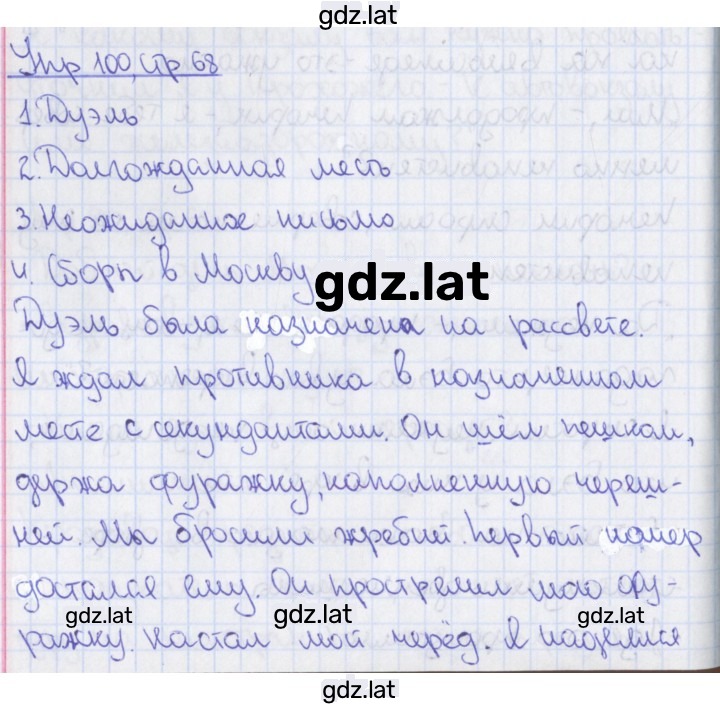 gdz.lat
Упр 100, стр 68
1. Дуэль
2. Долгожданная месть
3. Неожиданное письмо
4. Сборы в Москву
gdz.lat
Дуэль была назначена на рассвете.
Я ждал противника в назначенном
месте с секундантами. Он шёл пешком,
держа фуражку, наполненную череш-
ней. Мы бросили жребий. Первый номер
достался ему. Он прострелил мою фу-
gdz.lat gdz.lat gdz.lat
ражку. Настал мой черёд. Я надеялся
gdz.lat